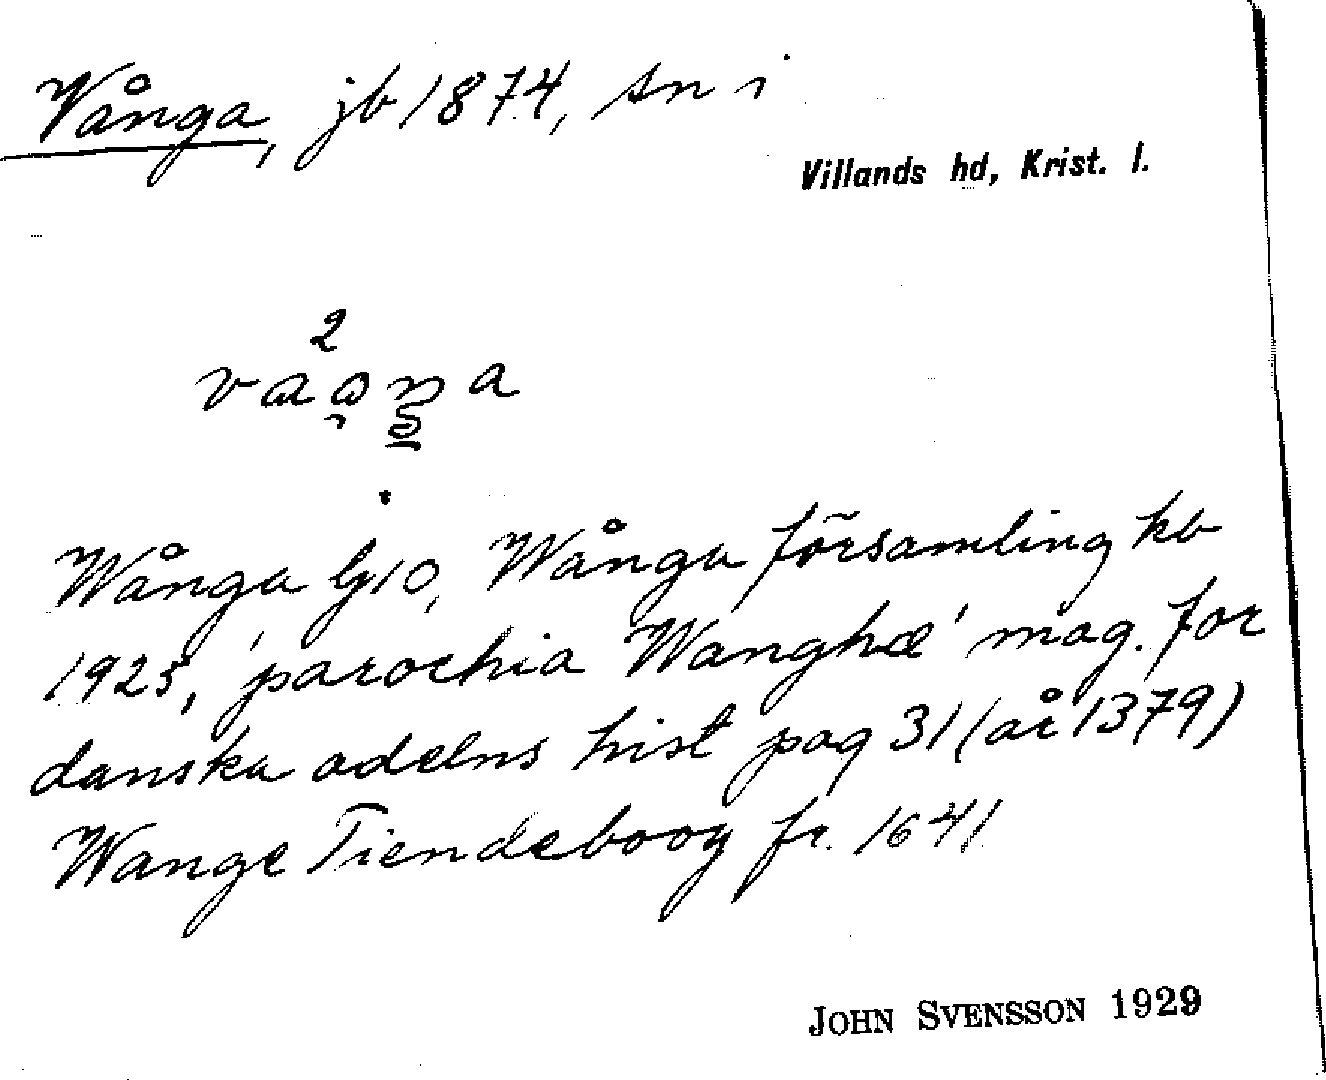 Vånga, jb 1874, sn i
Villands hd, Krist. l.
2
Wånga G10, Wånga församling kb
1925, 'parochia Wanghæ' mag. for
danska adelns hist pag 31 (år 1379)
Wange Tiendeboog fr. 1641
JOHN SVENSSON 1929